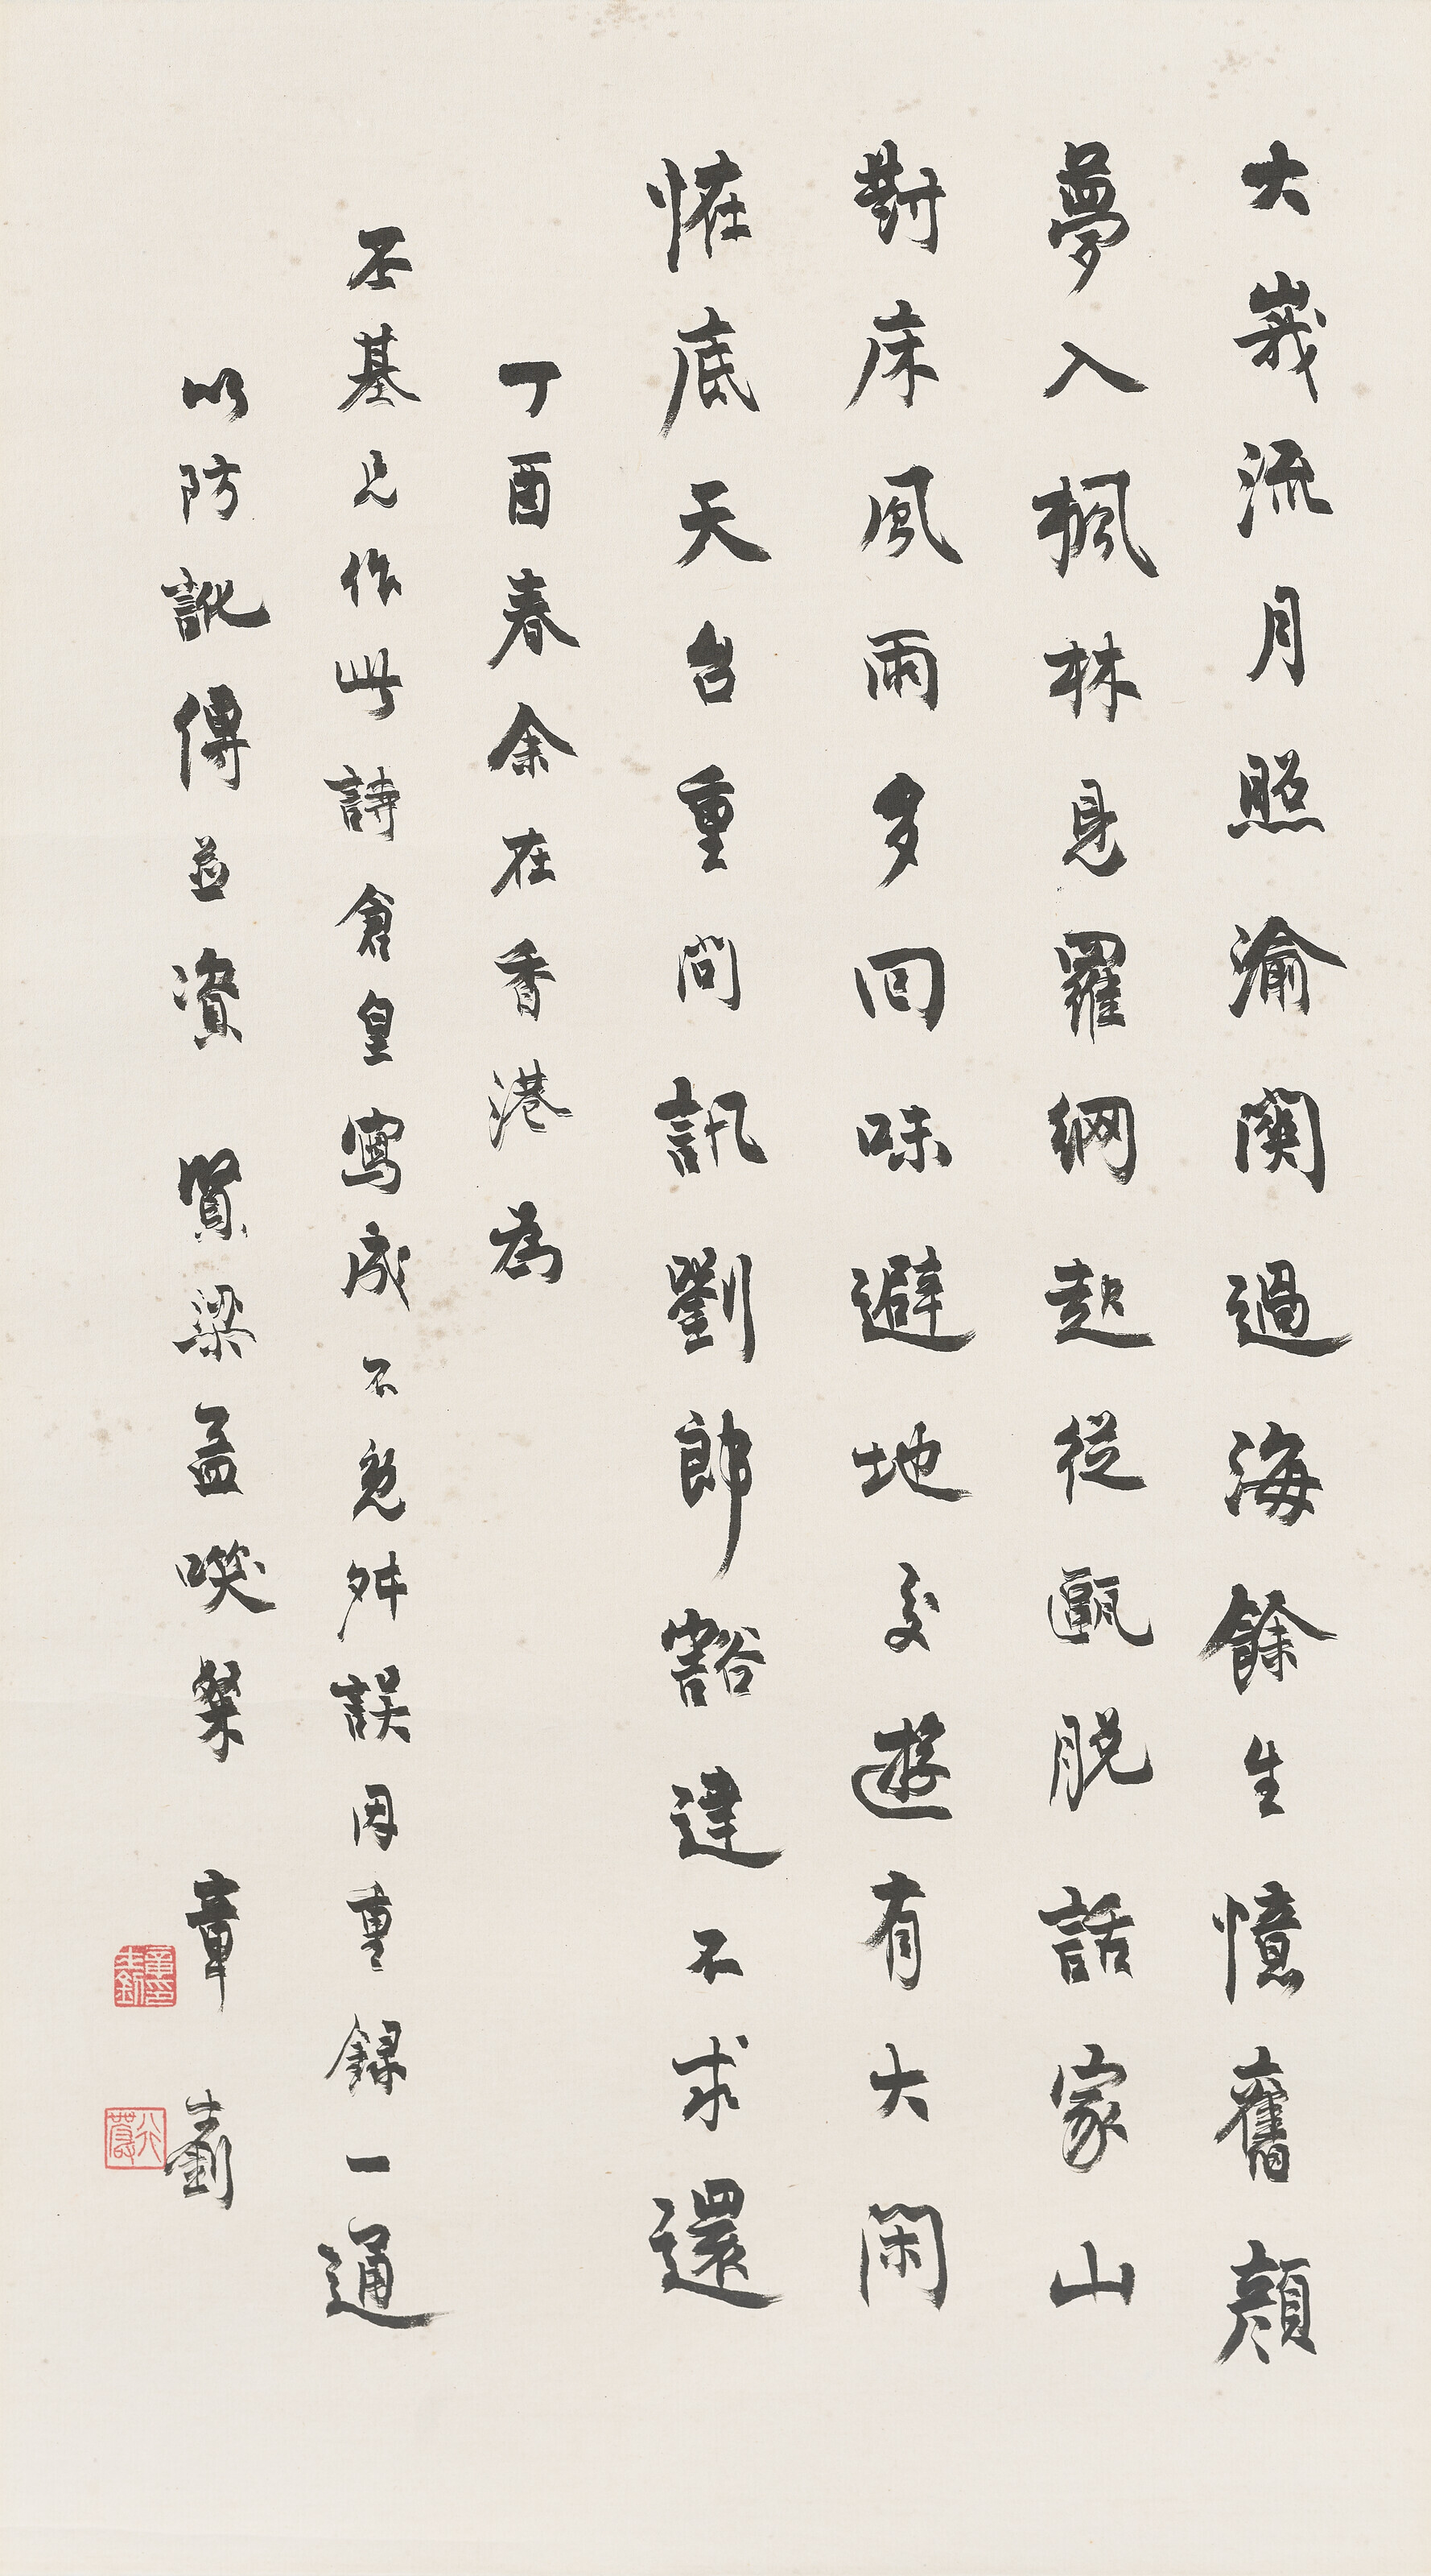 大峩流月照渝關過海餘生憶舊顔
夢入楓林見羅網起從甌脱話家山
對床風雨多回味避地交遊有大閑
恠底天台重問訊劉郎豁達不求還
丁酉春余在香港為
丕基兄作此詩倉皇寫成不免舛誤因重録一通
以防訛傳並資 賢梁孟噗粲 章士釗